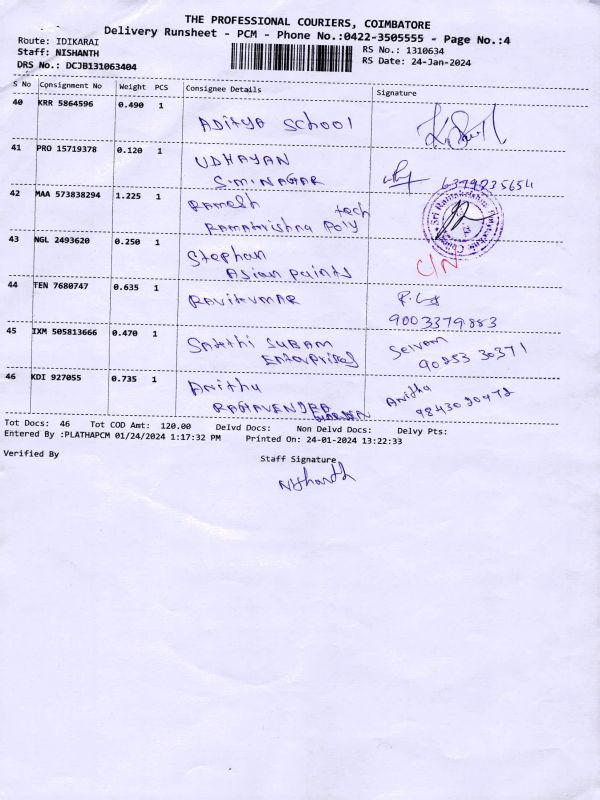 THE PROFESSIONAL COURIERS, COIMBATORE
Delivery Runsheet - PCM - Phone No.:0422-3505555 - Page No.:4
Route: IDIKARAI
Staff: NISHANTH
DRS No.: DCJB131063404
RS No.: 1310634
RS Date: 24-Jan-2024
S No Consignment No Weight PCS Consignee Details Signature
40 KRR 5864596 0.490 1
Aditya School
41 PRO 15719378 0.120 1
UDHAYAN
S.M.NAGAR
42 MAA 573838294 1.225 1
Ramesh tech
Ramakrishna Poly
43 NGL 2493620 0.250 1
Stephan
Asian paints
C/N
44 TEN 7680747 0.635 1
Ravikumar
9003379883
45 IXM 505813666 0.470 1
Sakthi SUBAM
Enterprises
Selvam
90853 30371
46 KDI 927055 0.735 1
Anitha
RAGHAVENDRA
Anitha
Tot Docs: 46 Tot COD Amt: 120.00 Delvd Docs: Non Delvd Docs: Delvy Pts:
Entered By :PLATHAPCM 01/24/2024 1:17:32 PM Printed On: 24-01-2024 13:22:33
Verified By
Staff Signature
Nishanth